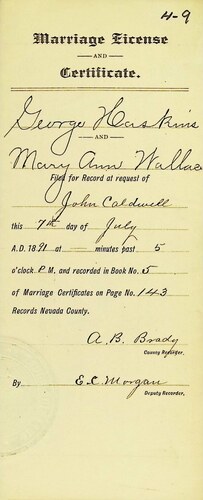 4-9
Marriage License
AND
Certificate.
George Haskins
AND
Mary Ann Wallace
Filed for Record at request of
John Caldwell
this 7th day of July
A.D. 1891 at — minutes past 5
o'clock P.M, and recorded in Book No. 5
of Marriage Certificates on Page No. 143
Records Nevada County.
A. B. Brady
County Recorder.
By E. C. Morgan
Deputy Recorder.